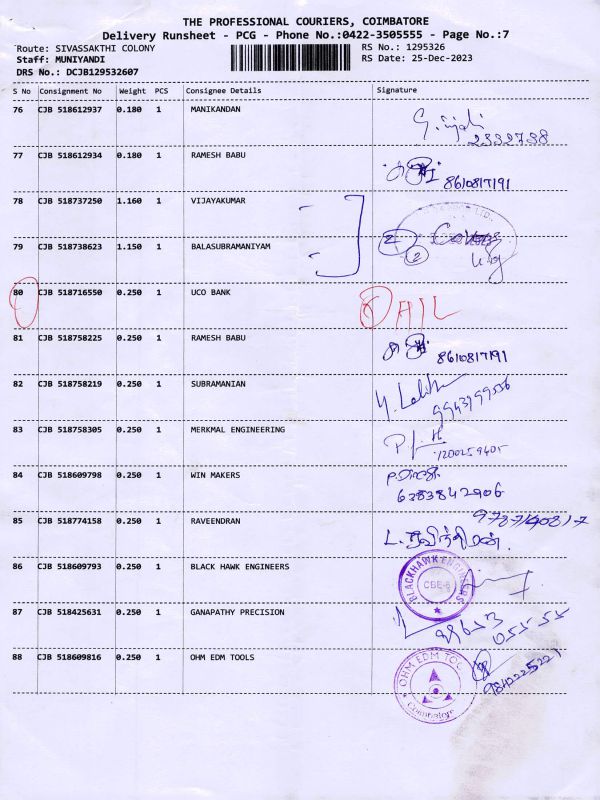 THE PROFESSIONAL COURIERS, COIMBATORE
Delivery Runsheet - PCG - Phone No.:0422-3505555 - Page No.:7
Route: SIVASSAKTHI COLONY RS No.: 1295326
Staff: MUNIYANDI RS Date: 25-Dec-2023
DRS No.: DCJB129532607
S No Consignment No Weight PCS Consignee Details Signature
76 CJB 518612937 0.180 1 MANIKANDAN
2332738
77 CJB 518612934 0.180 1 RAMESH BABU
8610817191
78 CJB 518737250 1.160 1 VIJAYAKUMAR
79 CJB 518738623 1.150 1 BALASUBRAMANIYAM
80 CJB 518716550 0.250 1 UCO BANK
81 CJB 518758225 0.250 1 RAMESH BABU
8610817191
82 CJB 518758219 0.250 1 SUBRAMANIAN
83 CJB 518758305 0.250 1 MERKMAL ENGINEERING
7200259405
84 CJB 518609798 0.250 1 WIN MAKERS
6383842906
85 CJB 518774158 0.250 1 RAVEENDRAN
86 CJB 518609793 0.250 1 BLACK HAWK ENGINEERS
BLACKHAWK ENGINEERS
CBE-6
87 CJB 518425631 0.250 1 GANAPATHY PRECISION
99653
05555
88 CJB 518609816 0.250 1 OHM EDM TOOLS
OHM EDM TOOLS
Coimbatore